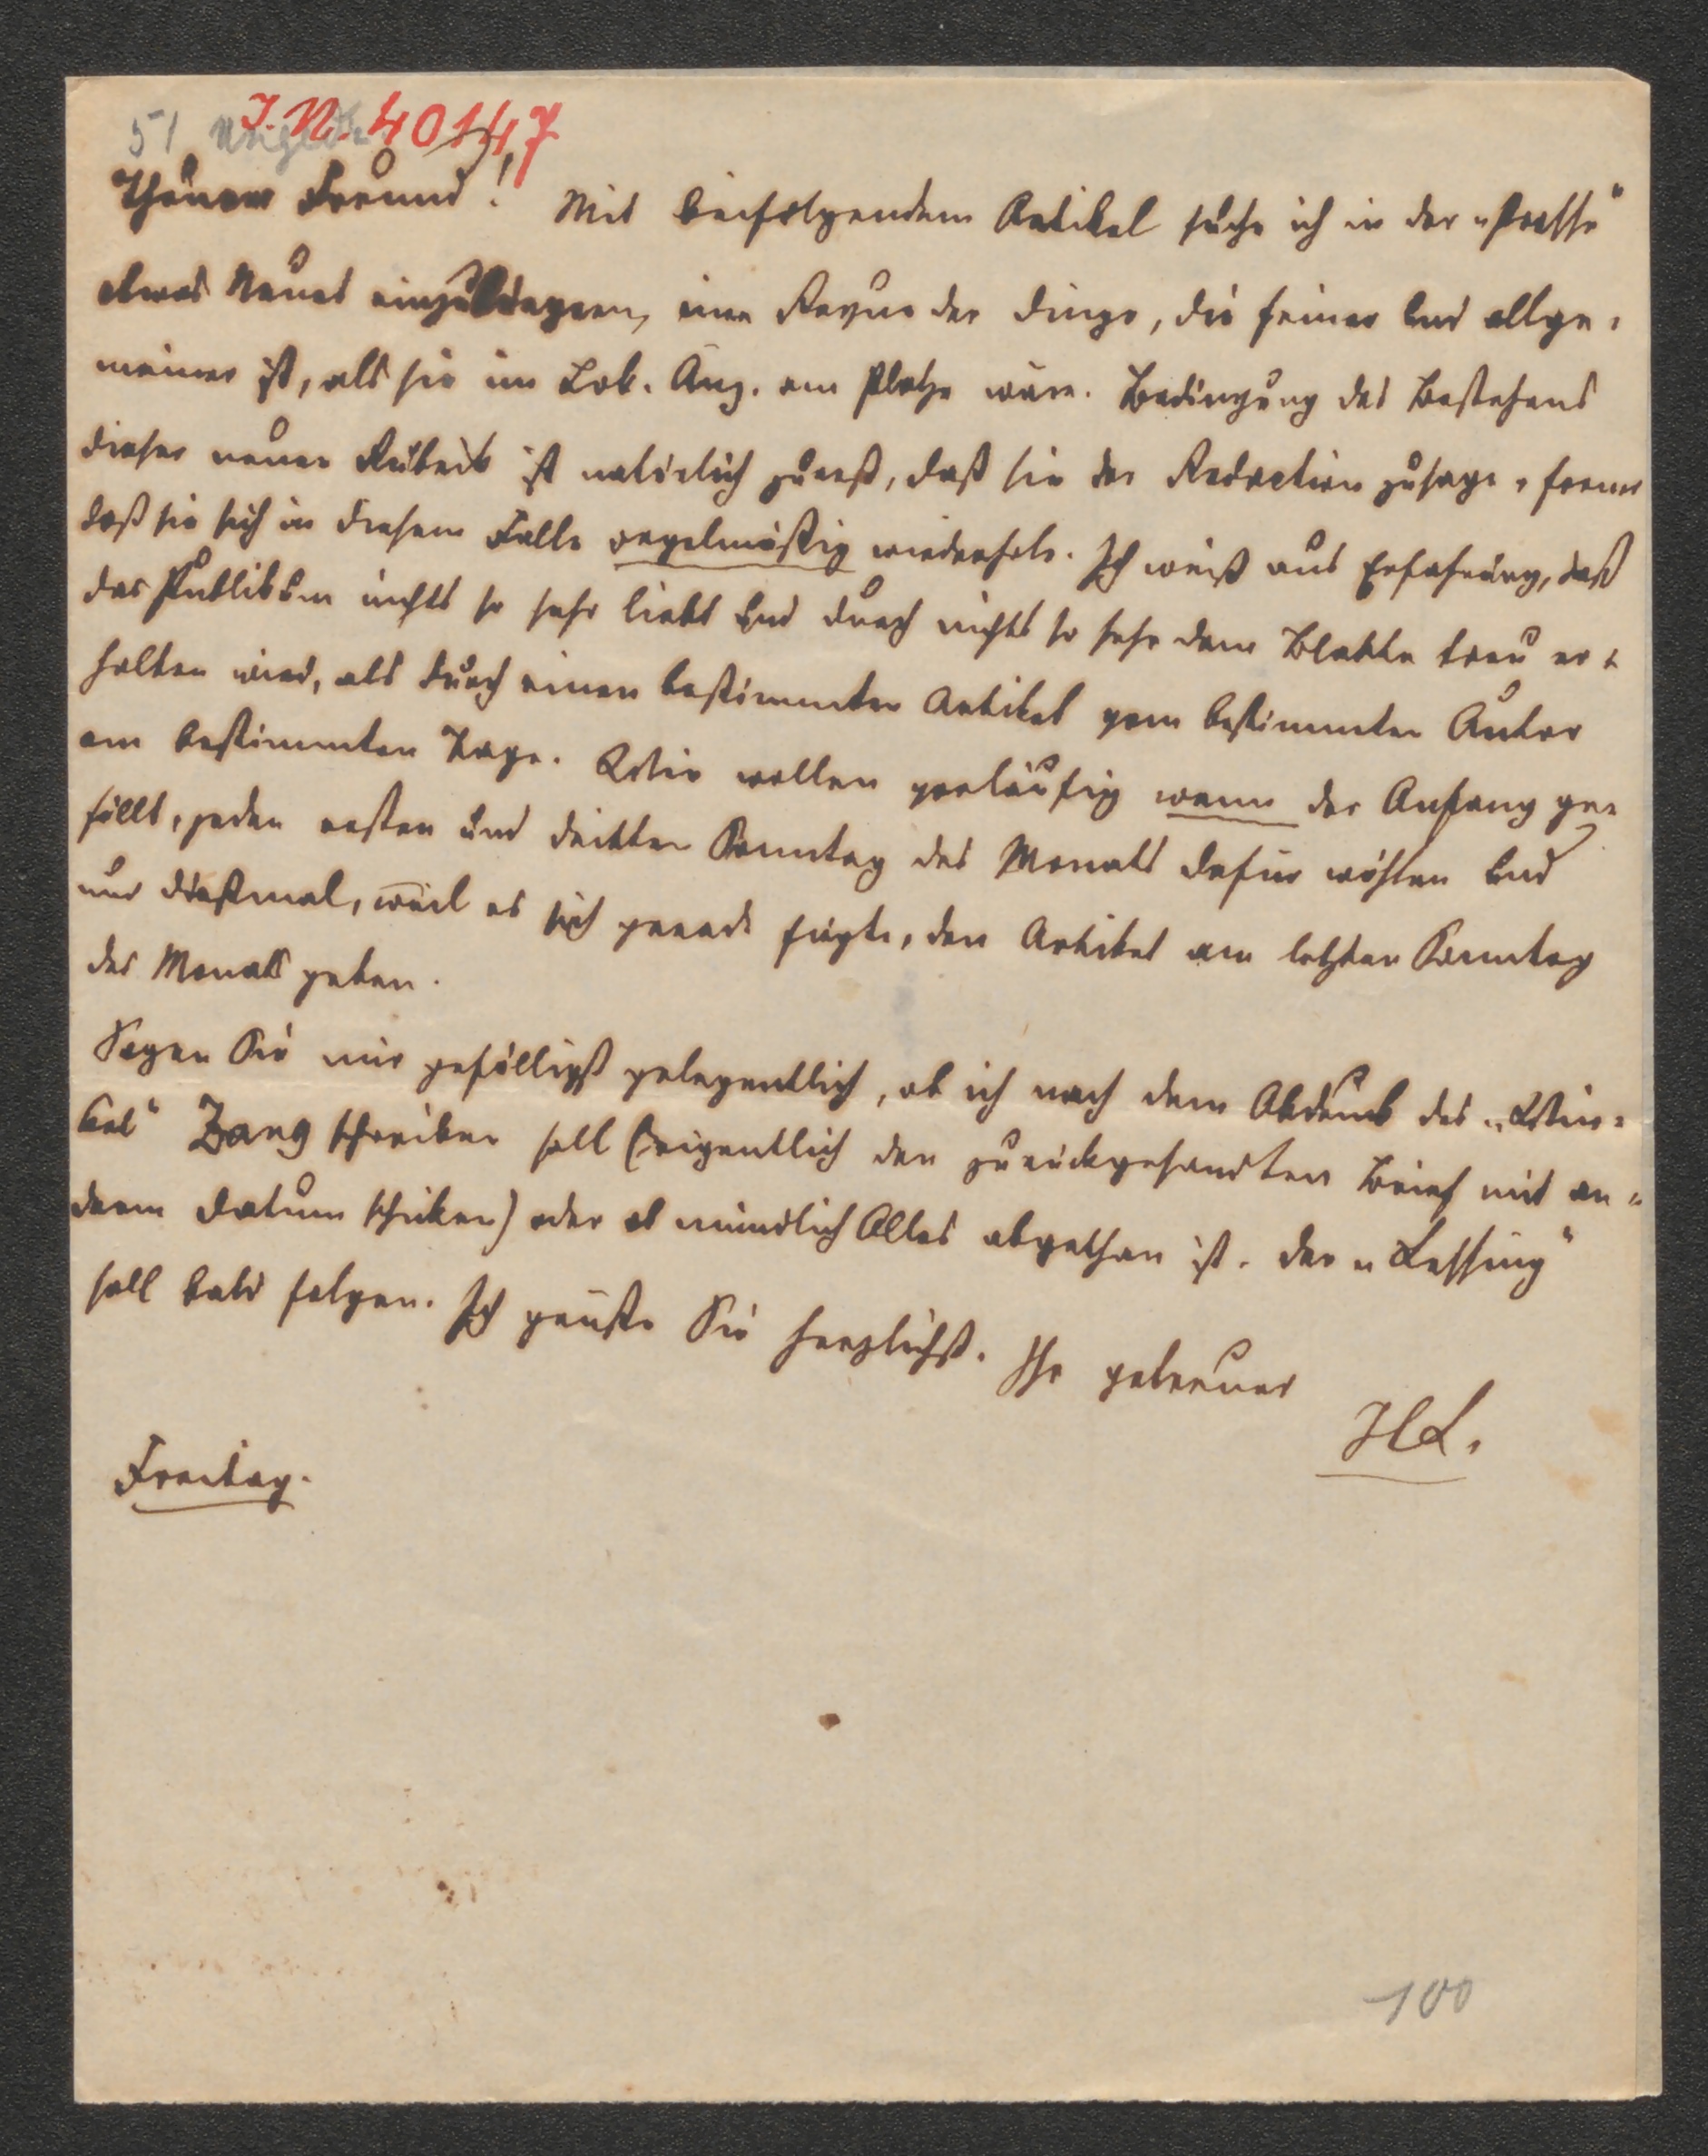 51
I. N. 40147
Theurer Freund! Mit beifolgendem Artikel suche ich in der „Presse“
etwas Neues einzubürgern, eine Revue der Dinge, die feiner und allge-
meiner ist, als sie im Lok. Anz. am Platze wäre. Bedingung des Bestehens
dieser neuen Rubrik ist natürlich zuerst, daß sie der Redaction zusage, ferner
daß sie sich in diesem Falle regelmäßig wiederhole. Ich weiß aus Erfahrung, daß
das Publikum nichts so sehr liebt und durch nichts so sehr dem Blatte treu er-
halten wird, als durch einen bestimmten Artikel vom bestimmten Autor
am bestimmten Tage. Wir wollen vorläufig wenn der Anfang ge-
fällt, jeden ersten und dritten Sonntag des Monats dafür wählen und
nur dießmal, weil es sich gerade fügte, den Artikel am letzten Sonntag
des Monats geben.
Sagen Sie mir gefälligst gelegentlich, ob ich nach dem Abdruck des „Win-
kel“ Zang schreiben soll (eigentlich den zurückgesandten Brief mit an-
derm Datum schicken) oder ob mündlich Alles abgethan ist. Der „Lessing“
soll bald folgen. Ich grüße Sie herzlichst. Ihr getreuer
HL.
Freitag.
100